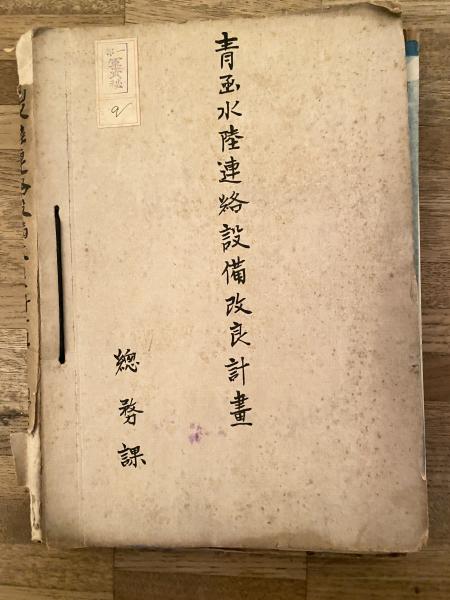 青函水陸連絡設備改良計畫
總務課